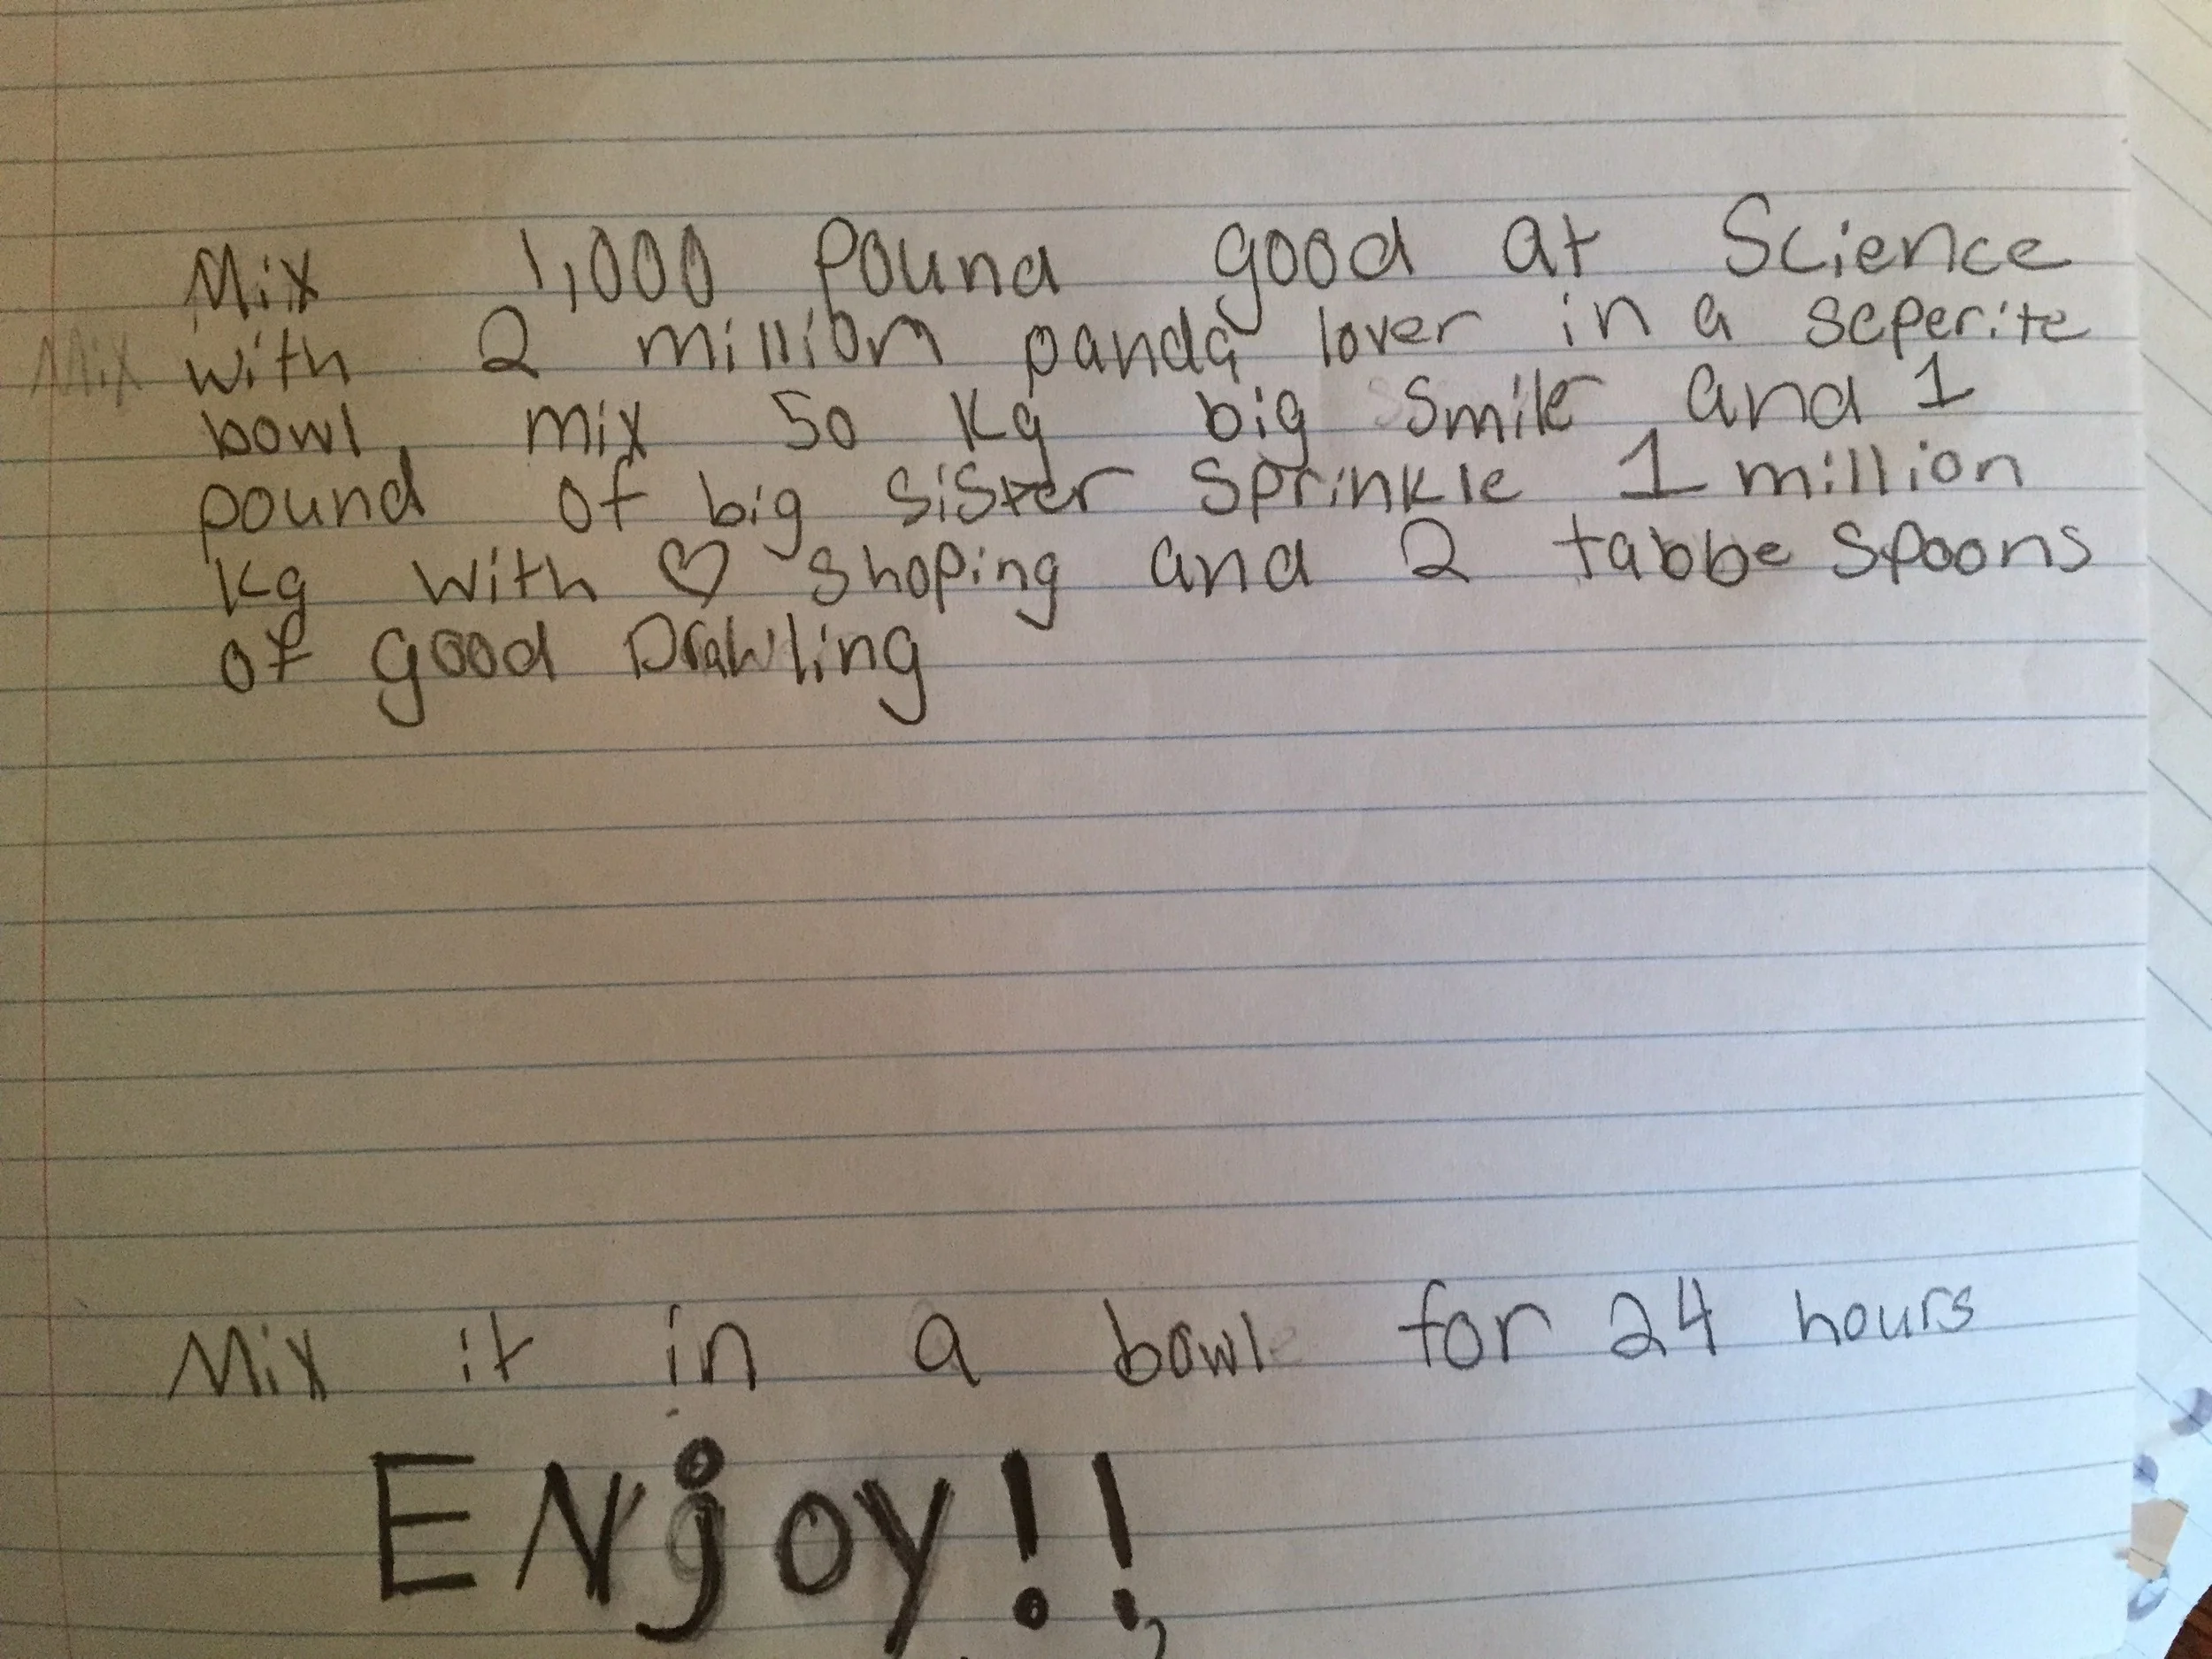 Mix 1,000 Pound good at Science
Mix with 2 million panda lover in a seperite
bowl, mix 50 kg big smile and 1
pound of big sister sprinkle 1 million
kg with ♡ shoping and 2 tabbe spoons
of good Drawling
Mix it in a bowl for 24 hours
ENjoy!!